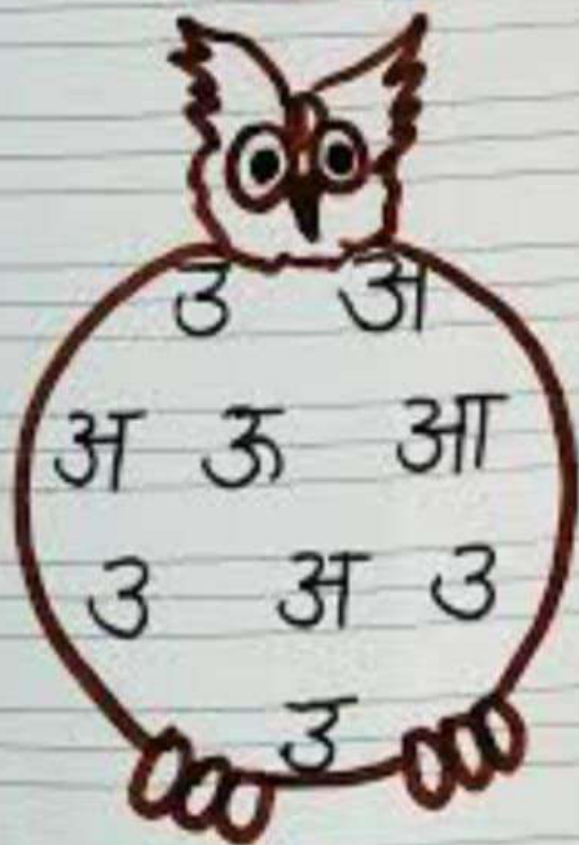 उ अ
अ ऊ आ
उ अ उ
उ